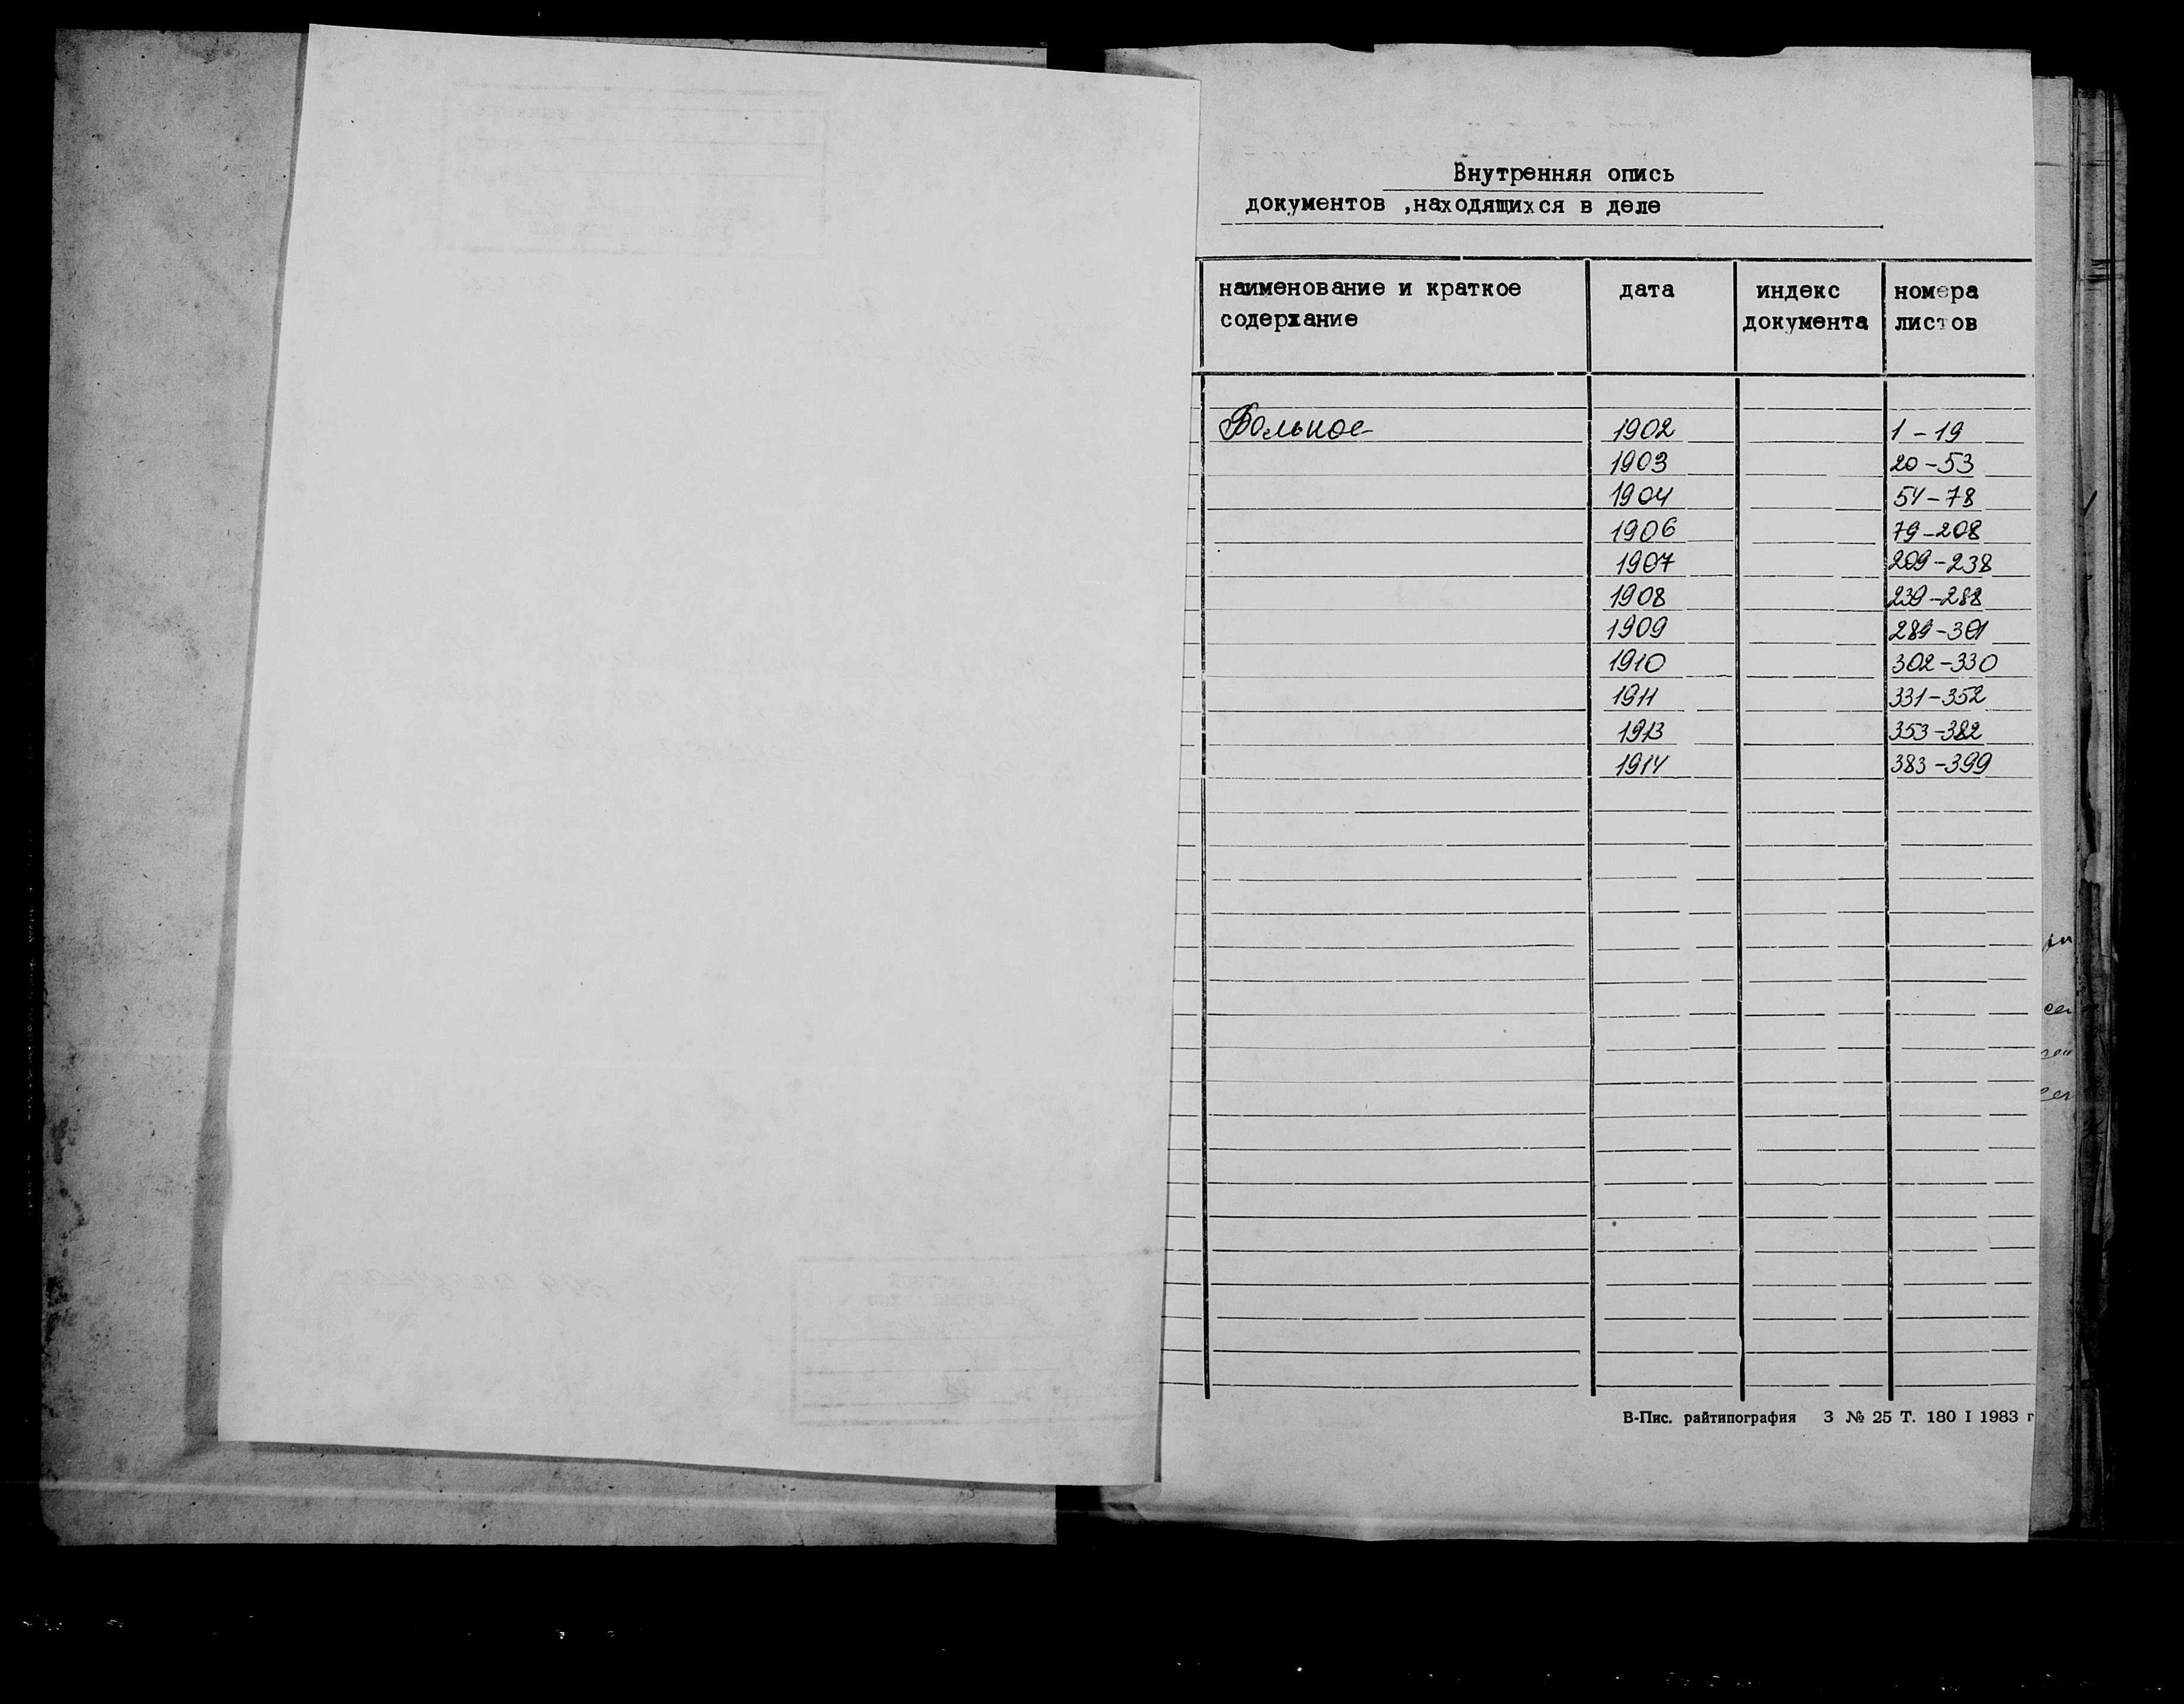 Внутренняя опись
документов ,находящихся в деле
наименование и краткое содержание дата индекс документа номера листов
Вольное 1902 1-19
1903 20-53
1904 54-78
1906 79-208
1907 209-238
1908 239-288
1909 289-301
1910 302-330
1911 331-352
1913 353-382
1914 383-399
В-Пис. райтипография 3 № 25 Т. 180 I 1983 г